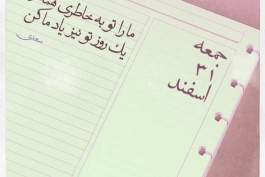 ما را تو به خاطری
یک روز تو نیز یاد ما کن
سعدی
جمعه
۳۱
اسفند